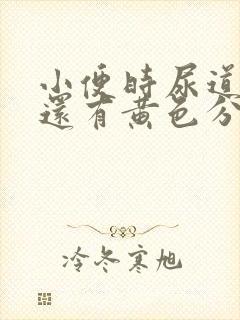 小便時尿道
還有黃色分
冷冬寒旭